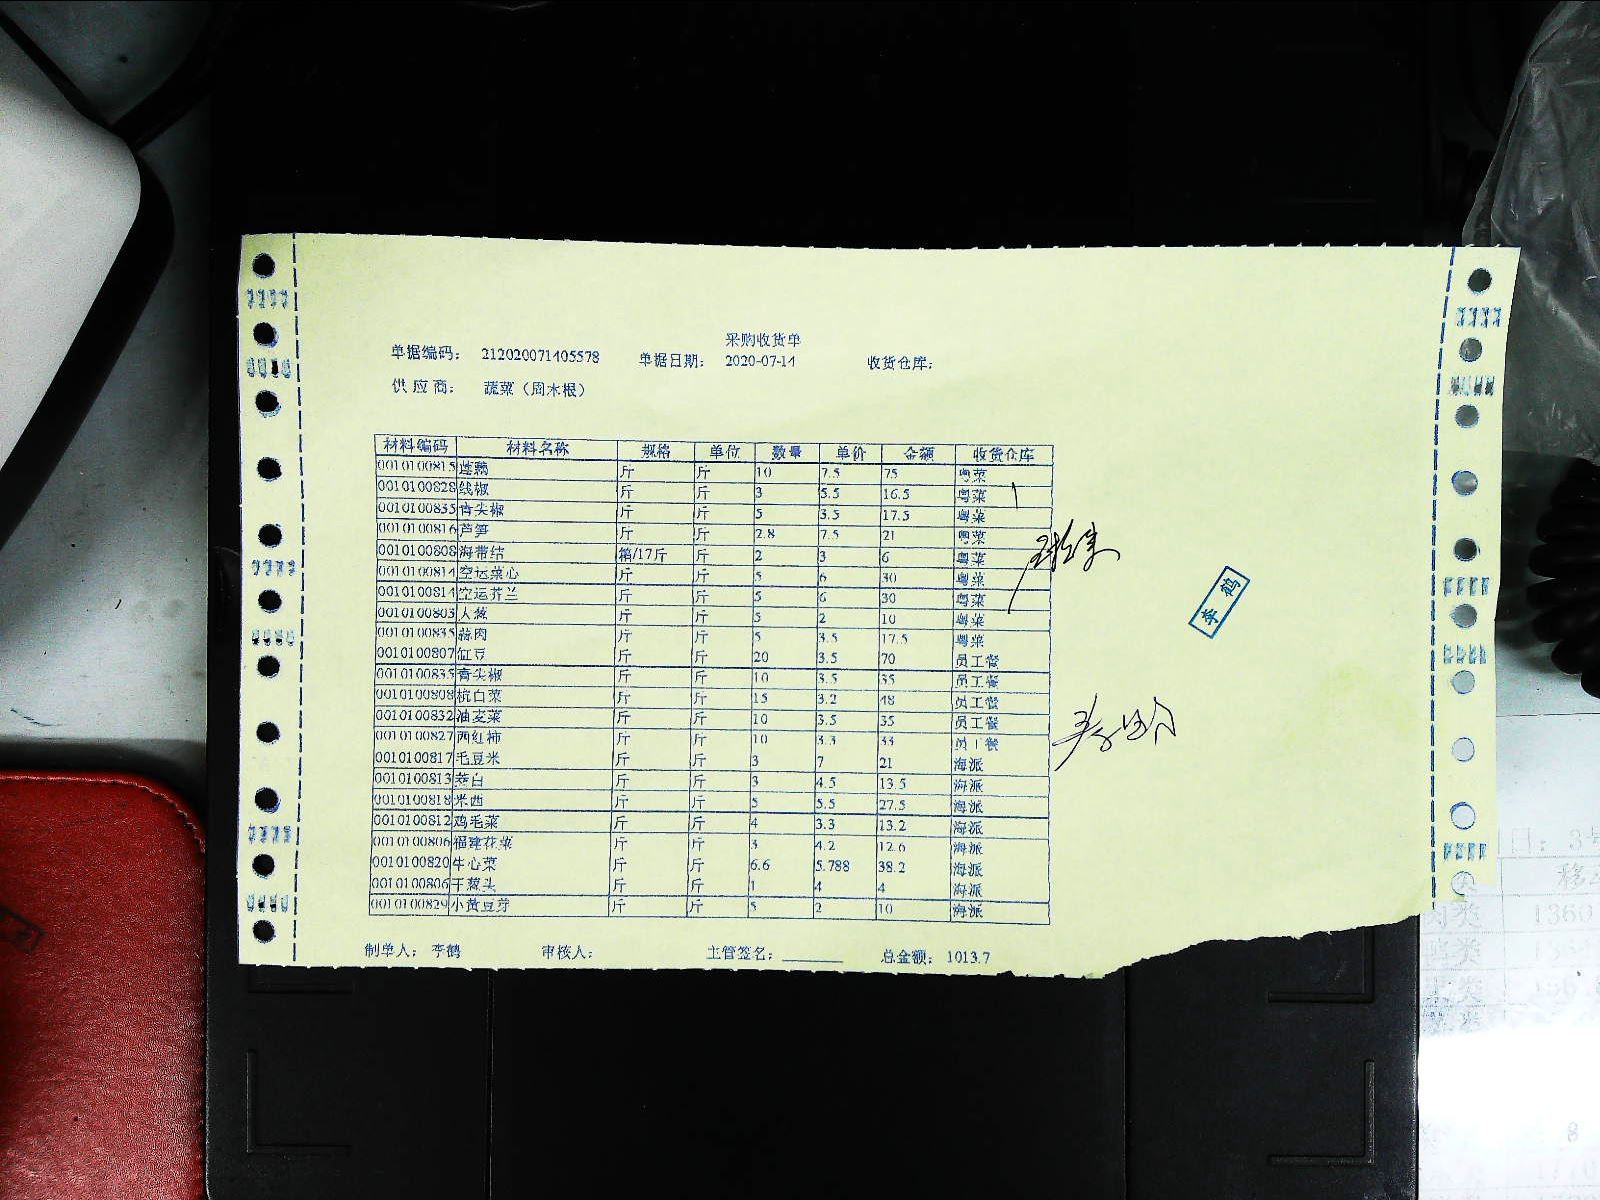 采购收货单
单据编码: 212020071405578 单据日期: 2020-07-14 收货仓库:
供应商: 蔬菜（周木根）
材料编码 材料名称 规格 单位 数量 单价 金额 收货仓库
0010100815 莲藕 斤 斤 10 7.5 75 粤菜
0010100828 线椒 斤 斤 3 5.5 16.5 粤菜
0010100835 青尖椒 斤 斤 5 3.5 17.5 粤菜
0010100816 芦笋 斤 斤 2.8 7.5 21 粤菜
0010100808 海带结 箱/17斤 斤 2 3 6 粤菜
0010100814 空运菜心 斤 斤 5 6 30 粤菜
0010100814 空运芥兰 斤 斤 5 6 30 粤菜
0010100803 大葱 斤 斤 5 2 10 粤菜
0010100835 蒜肉 斤 斤 5 3.5 17.5 粤菜
0010100807 缸豆 斤 斤 20 3.5 70 员工餐
0010100835 青尖椒 斤 斤 10 3.5 35 员工餐
0010100808 杭白菜 斤 斤 15 3.2 48 员工餐
0010100832 油麦菜 斤 斤 10 3.5 35 员工餐
0010100827 西红柿 斤 斤 10 3.3 33 员工餐
0010100817 毛豆米 斤 斤 3 7 21 海派
0010100813 茭白 斤 斤 3 4.5 13.5 海派
0010100818 米西 斤 斤 5 5.5 27.5 海派
0010100812 鸡毛菜 斤 斤 4 3.3 13.2 海派
0010100806 福建花菜 斤 斤 3 4.2 12.6 海派
0010100820 牛心菜 斤 斤 6.6 5.788 38.2 海派
0010100806 干葱头 斤 斤 1 4 4 海派
0010100829 小黄豆芽 斤 斤 5 2 10 海派
李鹤
制单人: 李鹤 审核人: 主管签名: 总金额: 1013.7